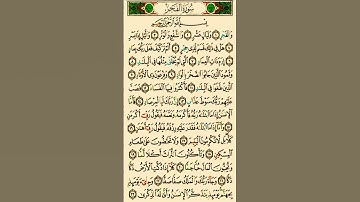 سُورَةُ الفَجْرِ
بِسْمِ اللَّهِ الرَّحْمَٰنِ الرَّحِيمِ
وَالْفَجْرِ ١ وَلَيَالٍ عَشْرٍ ٢ وَالشَّفْعِ وَالْوَتْرِ ٣ وَاللَّيْلِ إِذَا يَسْرِ ٤
هَلْ فِي ذَٰلِكَ قَسَمٌ لِّذِي حِجْرٍ ٥ أَلَمْ تَرَ كَيْفَ فَعَلَ رَبُّكَ
بِعَادٍ ٦ إِرَمَ ذَاتِ الْعِمَادِ ٧ الَّتِي لَمْ يُخْلَقْ مِثْلُهَا فِي الْبِلَادِ ٨
وَثَمُودَ الَّذِينَ جَابُوا الصَّخْرَ بِالْوَادِ ٩ وَفِرْعَوْنَ ذِي الْأَوْتَادِ ١٠
الَّذِينَ طَغَوْا فِي الْبِلَادِ ١١ فَأَكْثَرُوا فِيهَا الْفَسَادَ ١٢ فَصَبَّ
عَلَيْهِمْ رَبُّكَ سَوْطَ عَذَابٍ ١٣ إِنَّ رَبَّكَ لَبِالْمِرْصَادِ ١٤
فَأَمَّا الْإِنسَانُ إِذَا مَا ابْتَلَاهُ رَبُّهُ فَأَكْرَمَهُ وَنَعَّمَهُ فَيَقُولُ رَبِّي أَكْرَمَنِ
١٥ وَأَمَّا إِذَا مَا ابْتَلَاهُ فَقَدَرَ عَلَيْهِ رِزْقَهُ فَيَقُولُ رَبِّي أَهَانَنِ ١٦
كَلَّا بَل لَّا تُكْرِمُونَ الْيَتِيمَ ١٧ وَلَا تَحَاضُّونَ عَلَىٰ طَعَامِ
الْمِسْكِينِ ١٨ وَتَأْكُلُونَ التُّرَاثَ أَكْلًا لَّمًّا ١٩
وَتُحِبُّونَ الْمَالَ حُبًّا جَمًّا ٢٠ كَلَّا إِذَا دُكَّتِ الْأَرْضُ دَكًّا
دَكًّا ٢١ وَجَاءَ رَبُّكَ وَالْمَلَكُ صَفًّا صَفًّا ٢٢ وَجِيءَ يَوْمَئِذٍ
بِجَهَنَّمَ يَوْمَئِذٍ يَتَذَكَّرُ الْإِنسَانُ وَأَنَّىٰ لَهُ الذِّكْرَىٰ ٢٣